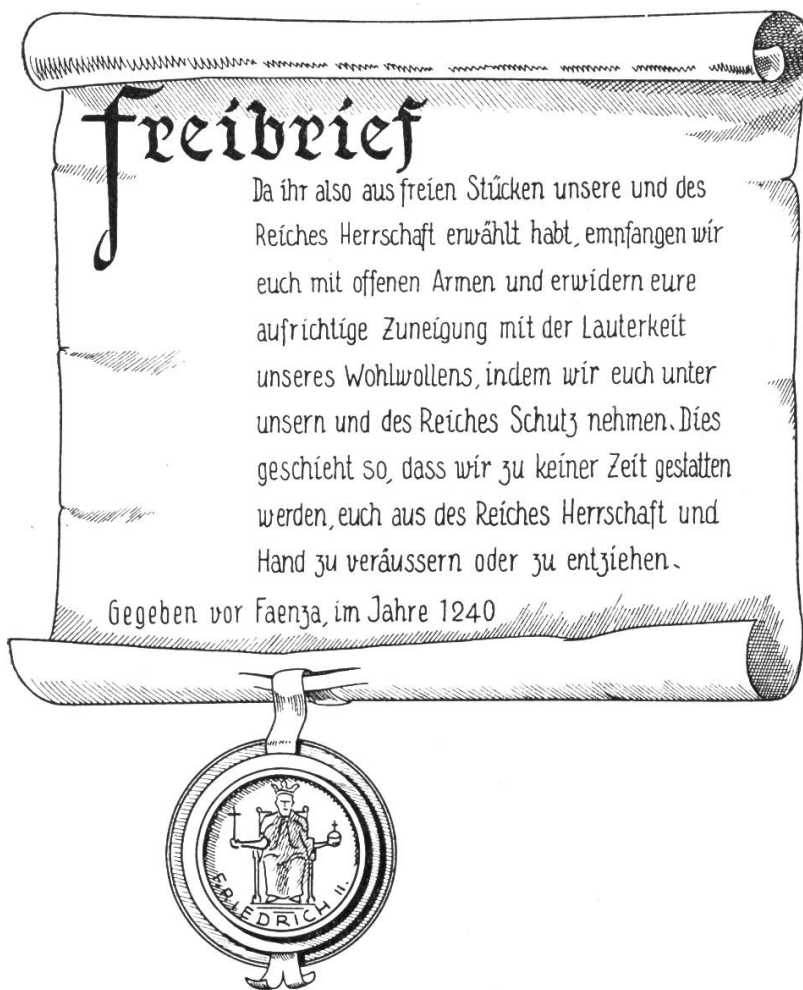 Freibrief
Da ihr also aus freien Stücken unsere und des
Reiches Herrschaft erwählt habt, empfangen wir
euch mit offenen Armen und erwidern eure
aufrichtige Zuneigung mit der Lauterkeit
unseres Wohlwollens, indem wir euch unter
unsern und des Reiches Schutz nehmen. Dies
geschieht so, dass wir zu keiner Zeit gestatten
werden, euch aus des Reiches Herrschaft und
Hand zu veräussern oder zu entziehen.
Gegeben vor Faenza, im Jahre 1240
FRIEDRICH II.